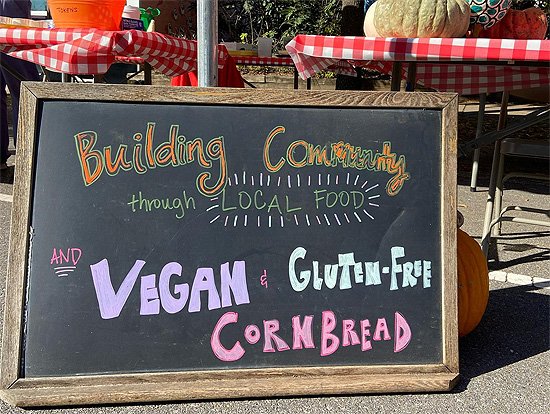 TOKENS
Building Community
through LOCAL FOOD
AND VEGAN & GLUTEN-FREE
CORNBREAD